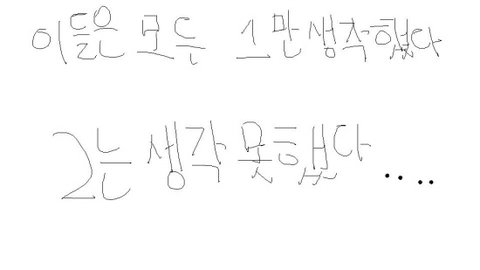 이들은 모두 1만 생각했다
2는 생각 못했다....